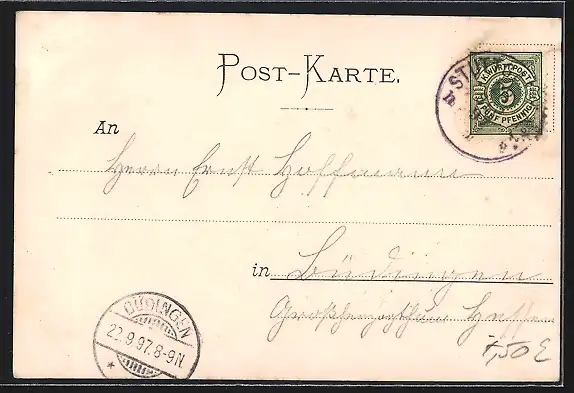 POST-KARTE.
STU
K. WÜRTT. POST
5
FÜNF PFENNIG
An
Herrn Ernst Hoffmann
in Büdingen
Großherzogthum Hessen
BÜDINGEN
22.9.97.8-9N
7,50 E